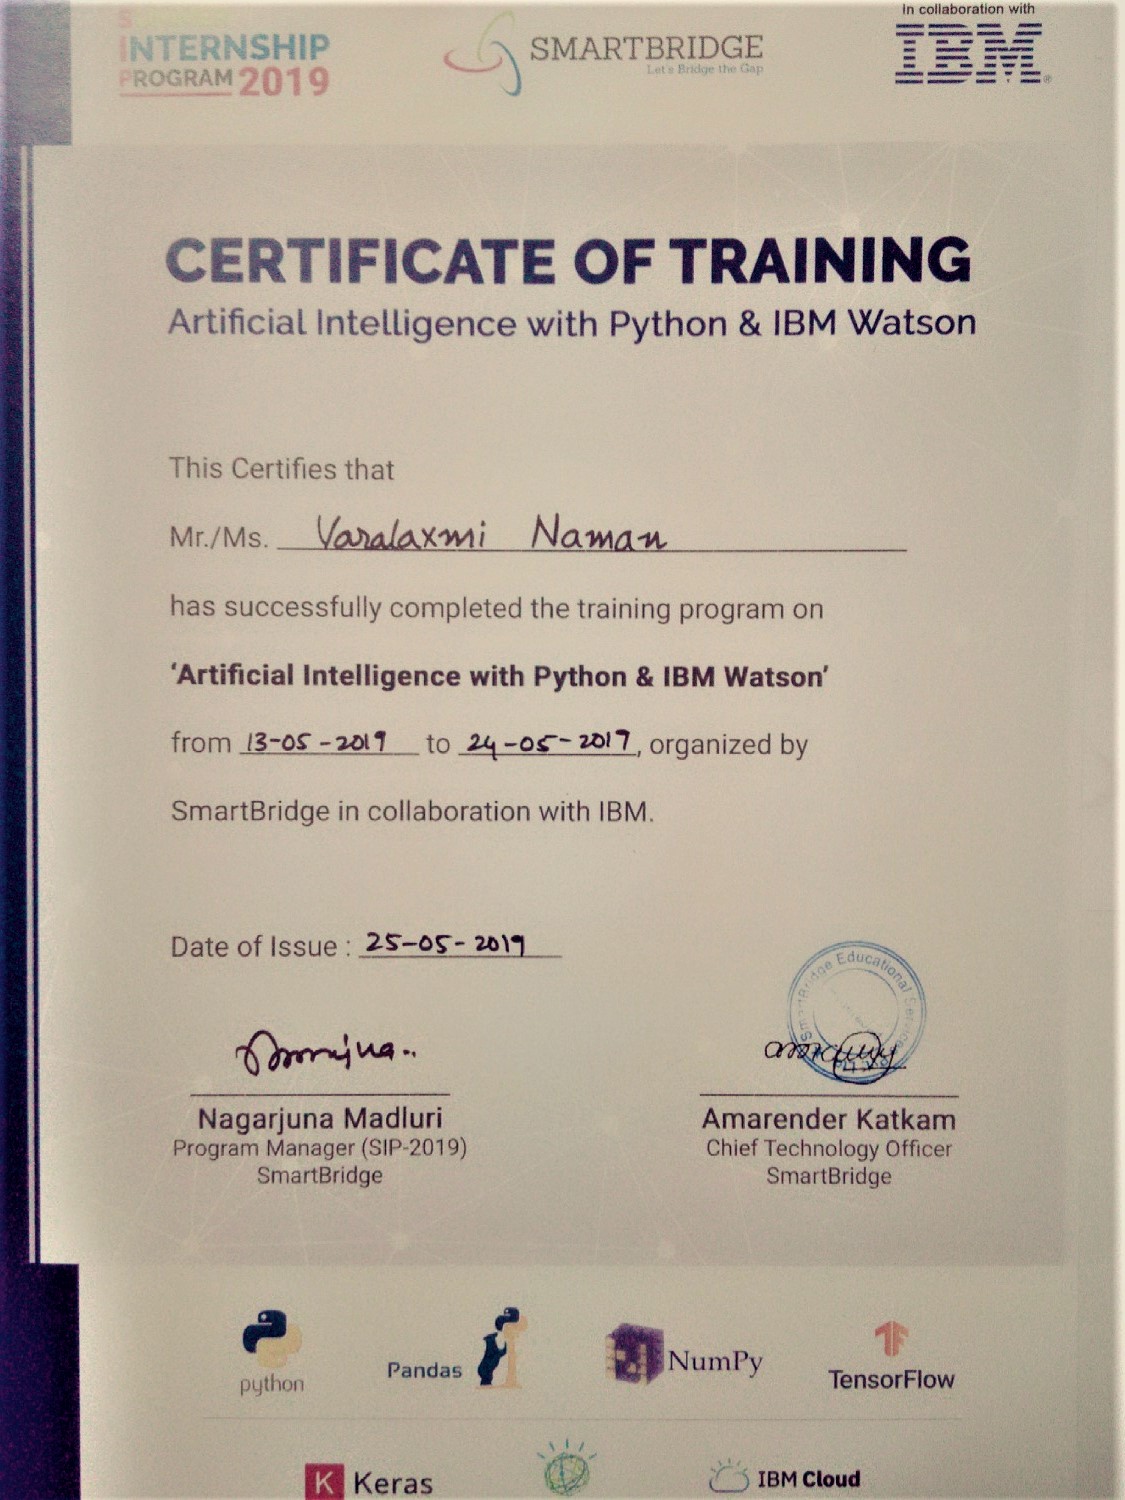 INTERNSHIP
PROGRAM 2019
SMARTBRIDGE
Let's Bridge the Gap
In collaboration with
IBM
CERTIFICATE OF TRAINING
Artificial Intelligence with Python & IBM Watson
This Certifies that
Mr./Ms. Varalaxmi Naman
has successfully completed the training program on
‘Artificial Intelligence with Python & IBM Watson’
from 13-05-2019 to 24-05-2019, organized by
SmartBridge in collaboration with IBM.
Date of Issue : 25-05-2019
SmartBridge Educational Services
Nagarjuna Madluri
Program Manager (SIP-2019)
SmartBridge
Amarender Katkam
Chief Technology Officer
SmartBridge
python
Pandas
NumPy
TensorFlow
K Keras
IBM Cloud